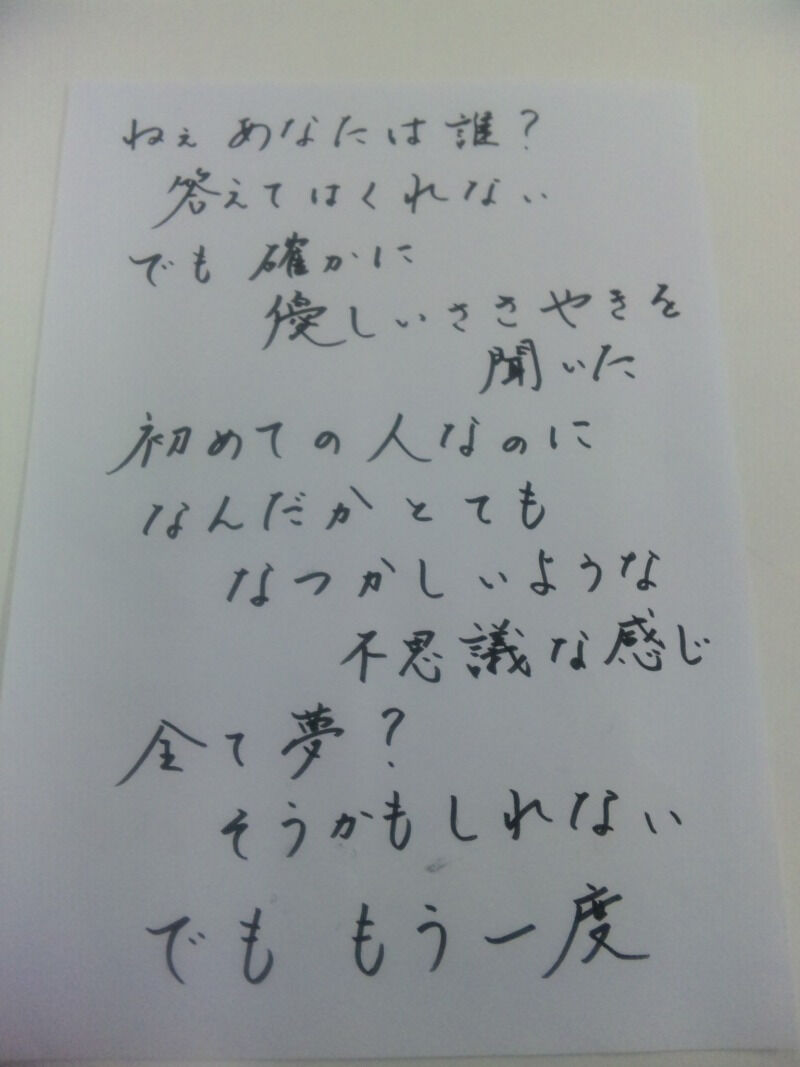 ねぇ あなたは誰?
答えてはくれない
でも 確かに
優しいささやきを
聞いた
初めての人なのに
なんだかとても
なつかしいような
不思議な感じ
全て夢?
そうかもしれない
でも もう一度